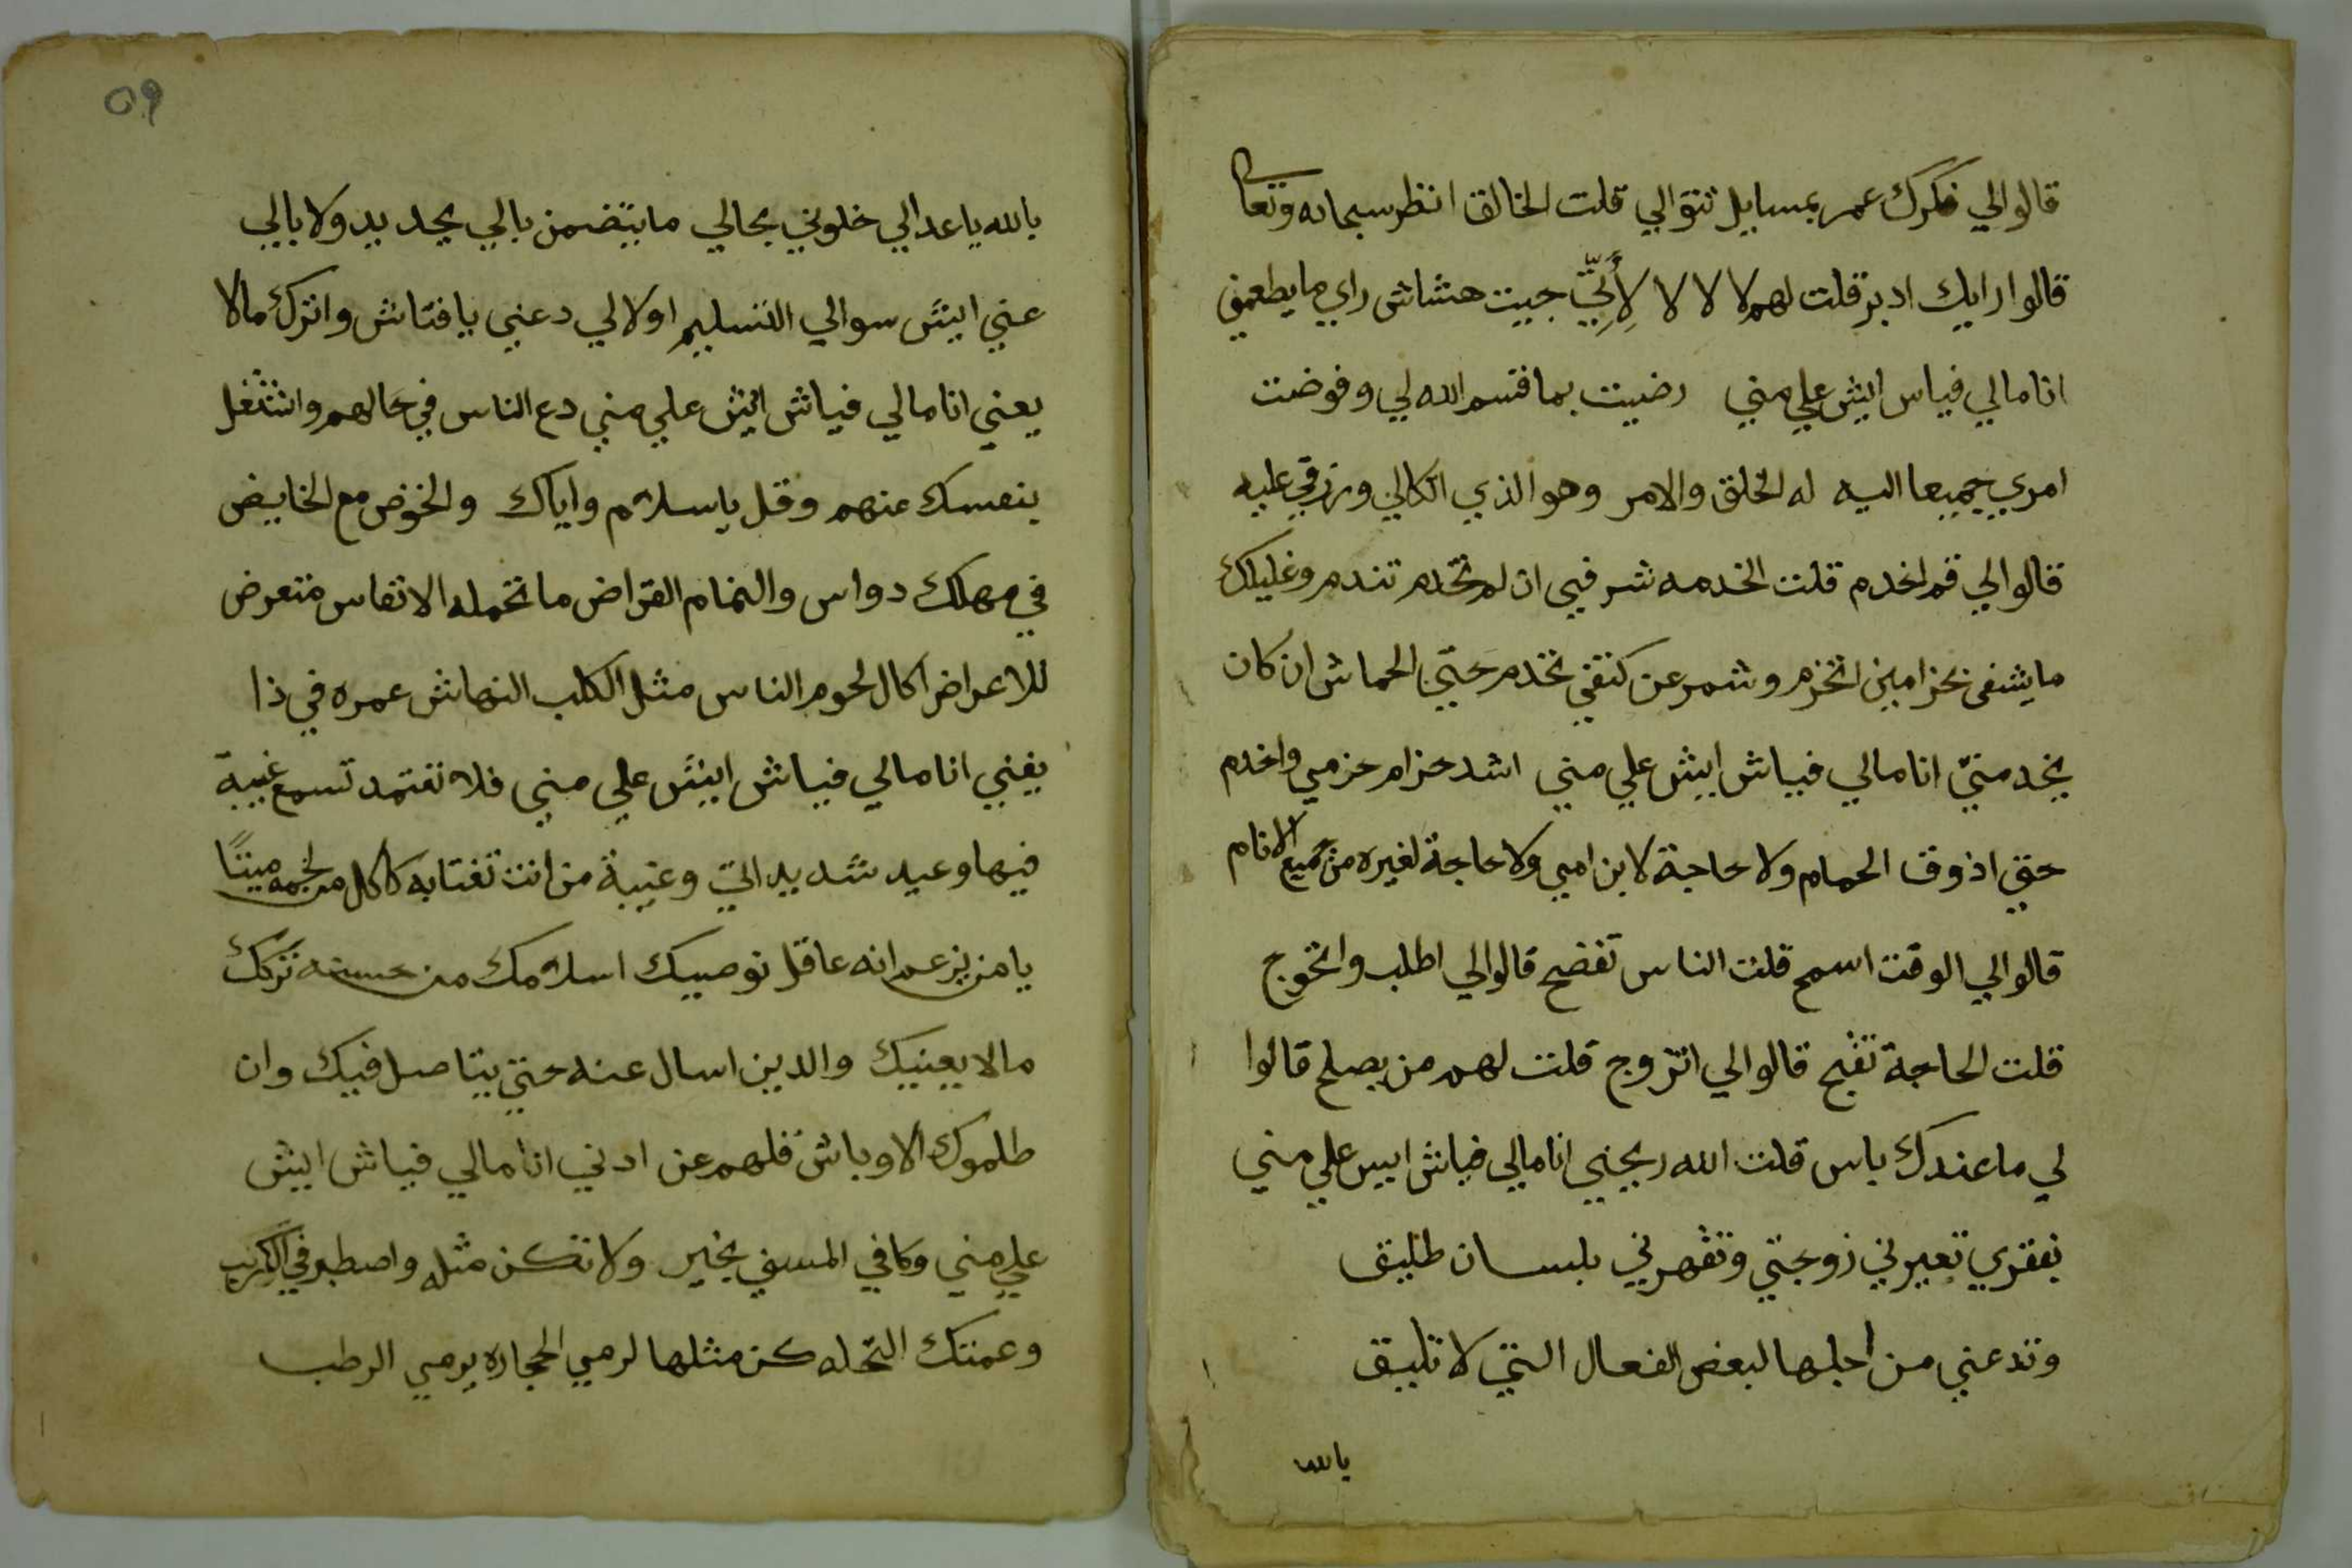 قالوا لي فكرك عمر بمسايل تتوالي قلت الخالق انظر سبحانه وتعالى
قالوا رايك ادبر قلت لهم لا لا لا لِأَنِّي جيت هشاش راي ما يطعمني
انا مالي فياس ايش علي مني رضيت بما قسم الله لي وفوضت
امري جميعا اليه له الخلق والامر وهو الذي اتكالي ورزقي عليه
قالوا لي قم اخدم قلت الخدمه شر فيي ان لم تخدم تندم وغليلك
ما يشفى بحزامين اتحزم وشمر عن كتفي تخدم حتي الحماش ان كان
يخدمني انا مالي فياش ايش علي مني اشد حزام حزمي واخدم
حتى اذوق الحمام ولا حاجة لابن امي ولا حاجة لغيره من جميع الانام
قالوا لي الوقت اسمح قلت الناس تفضح قالوا لي اطلب واتحوج
قلت الحاجة تقبح قالوا لي اتزوج قلت لهم من يصلح قالوا
لي ما عندك باس قلت الله ريحني انا مالي فياش ايس علي مني
بفقري تعيرني زوجتي وتقهرني بلسان طليق
وتدعني من اجلها لبعض الفعال التي لا تليق
بالله
09
بالله يا عدالي خلوني بحالي ما يتضمن بالي بجد بد ولا بالي
عني ايش سوالي التسليم اولالي دعني يا فتاش واترك ما لا
يعني انا مالي فياش ايش علي مني دع الناس في حالهم واشتغل
بنفسك عنهم وقل يا سلام واياك والخوض مع الخايض
في مهلك دواس والنمام القراض ما تحمله الانفاس متعرض
للاعراض اكال لحوم الناس مثل الكلب النهاش عمره في ذا
يفني انا مالي فياش ايش علي مني فلا تعتمد تسمع غيبة
فيها وعيد شديد اتي وغيبة من انت تغتابه كاكل من لحمه ميتًا
يا من يزعم انه عاقل نوصيك اسلامك من حسنه تركك
ما لا يعنيك والدين اسال عنه حتي يتاصل فيك وان
طلموك الاوباش فلهم عن ادني انا مالي فياش ايش
علي مني وكافي المسي بخير ولا تكن مثله واصطبر في الكرب
وعمتك النحله كن مثلها لرمي الحجاره يرمي الرطب